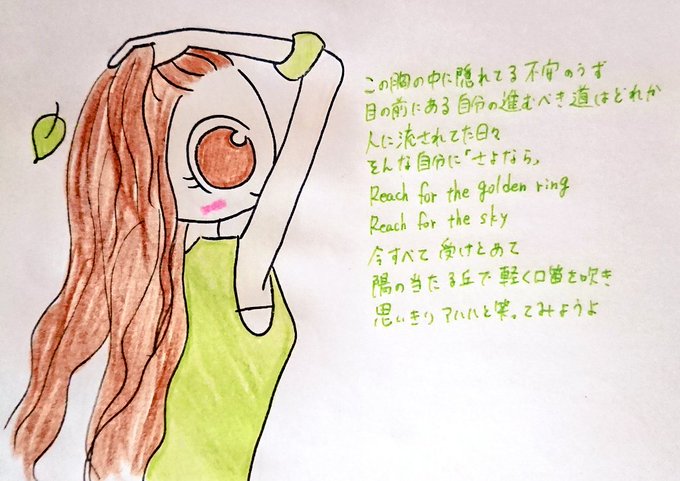 この胸の中に隠れてる不安のうず
目の前にある自分の進むべき道はどれか
人に流されてた日々
そんな自分に「さよなら」
Reach for the golden ring
Reach for the sky
今すべて受けとめて
陽の当たる丘で軽く口笛を吹き
思いきりアハハと笑ってみようよ